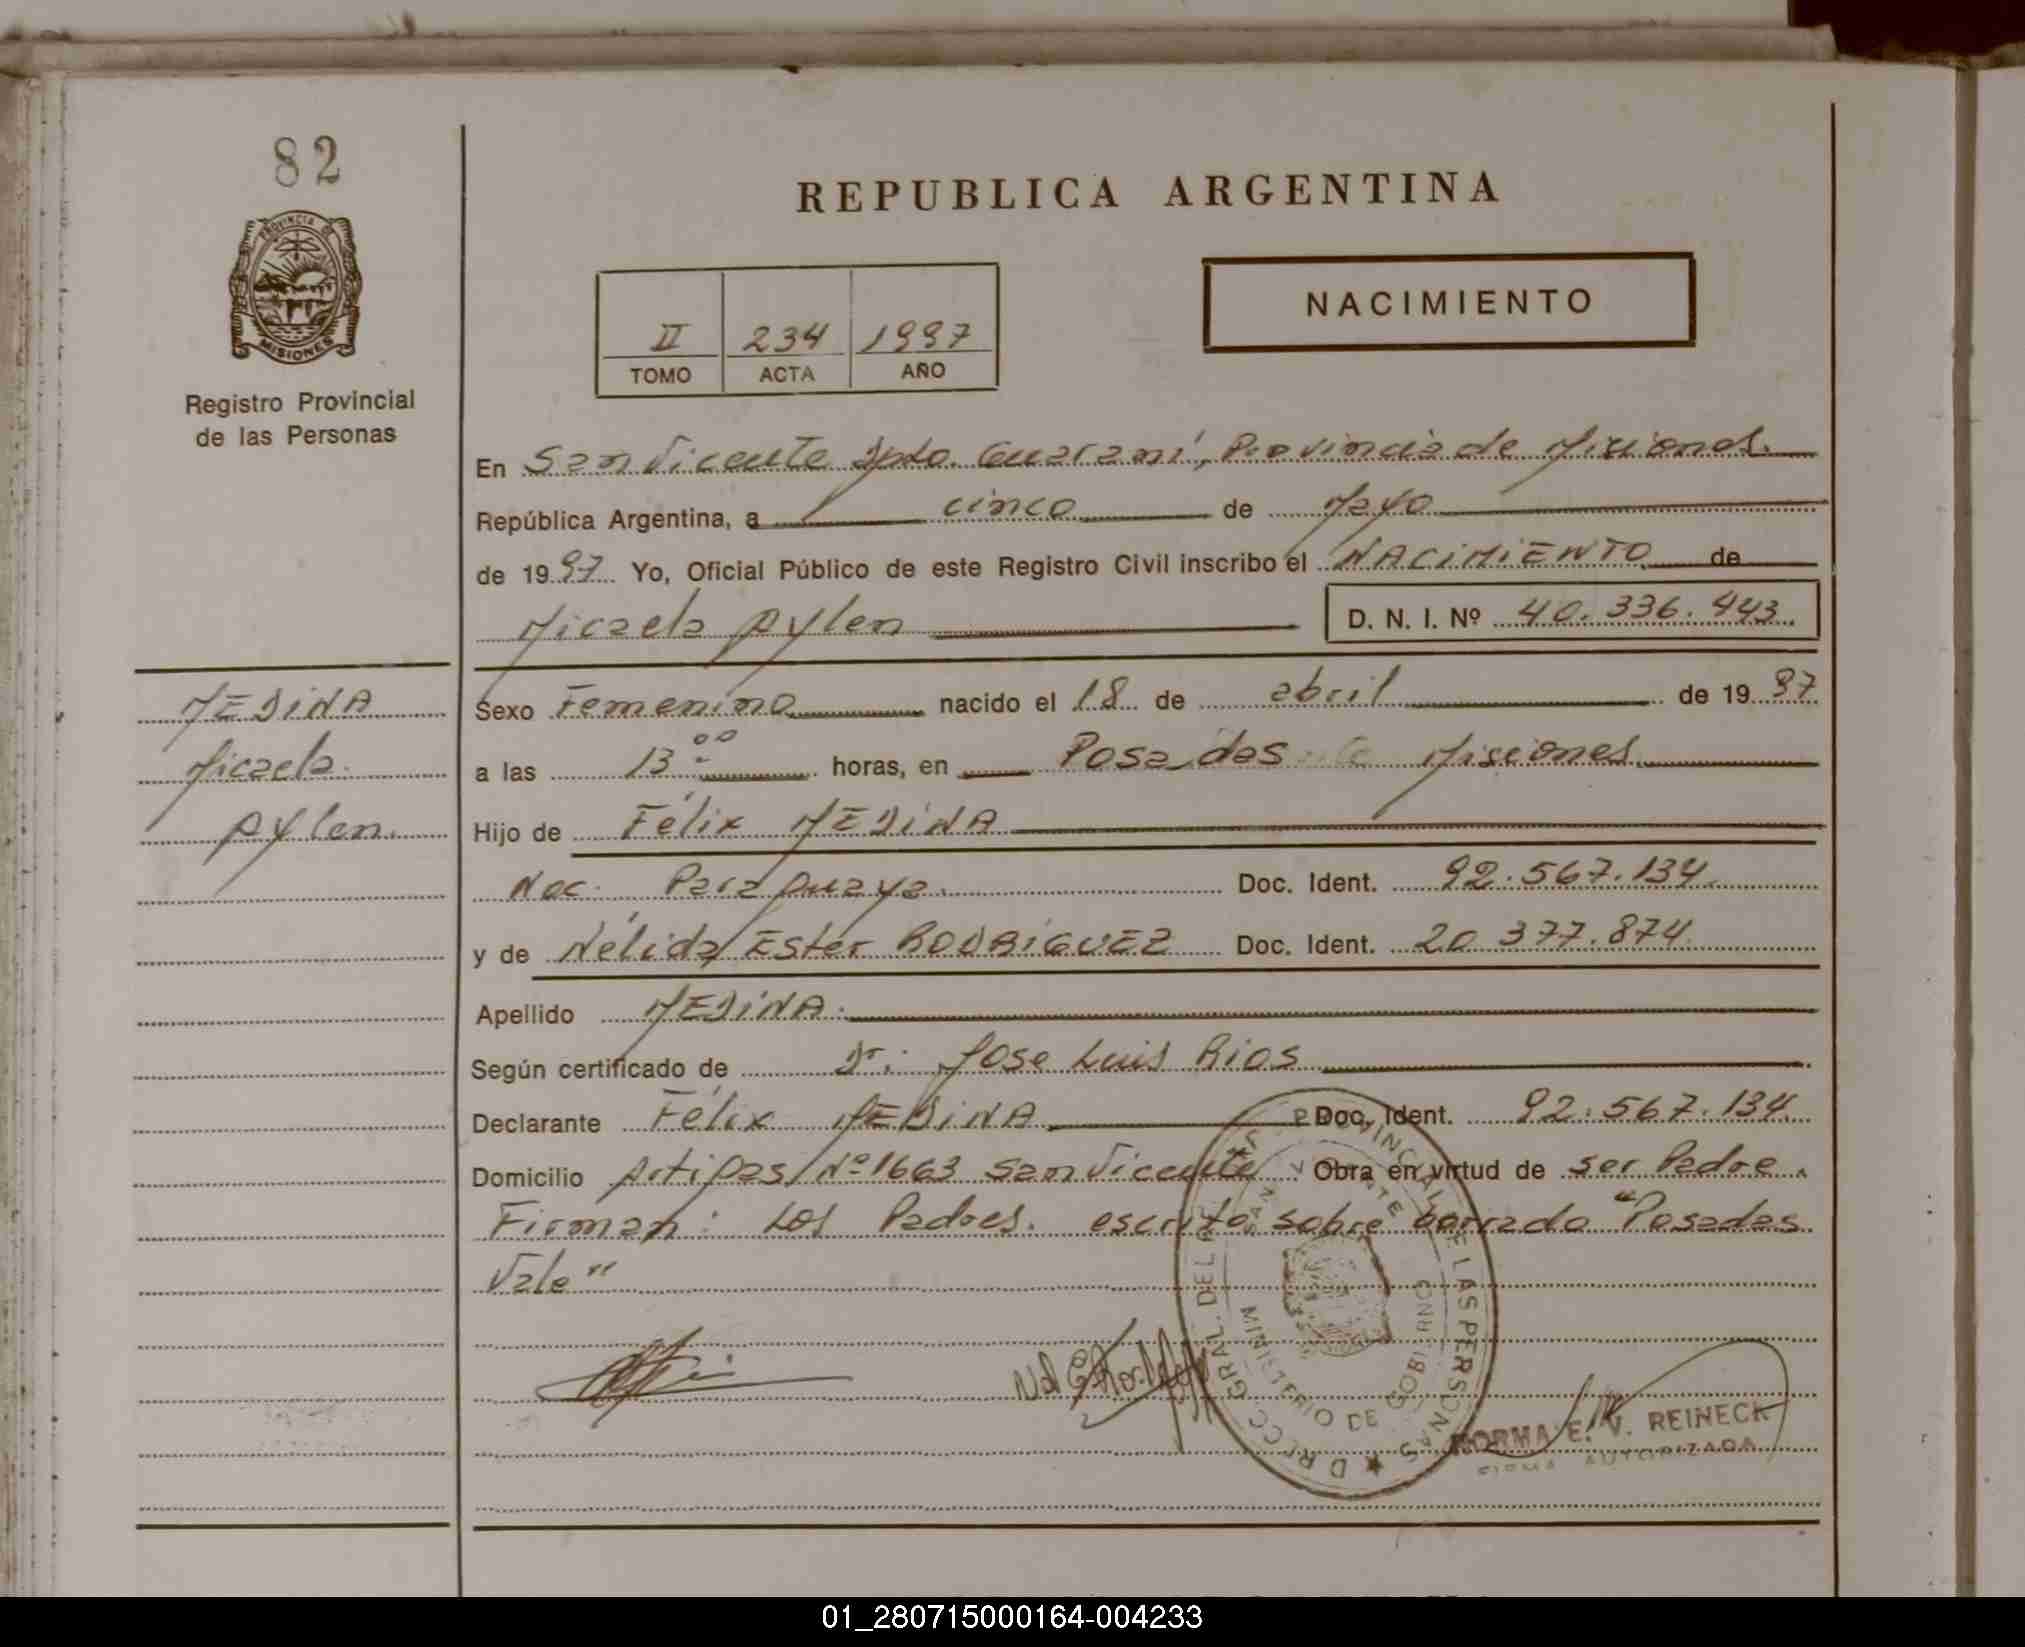 82
REPUBLICA ARGENTINA
PROVINCIA DE
MISIONES
Registro Provincial
de las Personas
NACIMIENTO
II 234 1997
TOMO ACTA AÑO
En San Vicente Dpto. Guaraní, Provincia de Misiones.
República Argentina, a cinco de Mayo
de 1997 Yo, Oficial Público de este Registro Civil inscribo el NACIMIENTO de
Micaela Aylen D. N. I. Nº 40.336.443.
MEDINA
Micaela
Aylen.
Sexo Femenino nacido el 18 de abril de 1997
a las 13:00 horas, en Posadas Misiones.
Hijo de Félix MEDINA
Nac. Paraguaya. Doc. Ident. 92.567.134
y de Nélida Ester RODRIGUEZ Doc. Ident. 20 377.874
Apellido MEDINA.
Según certificado de Dr. Jose Luis Rios
Declarante Félix MEDINA Doc. Ident. 92.567.134
Domicilio Artigas Nº 1663 San Vicente Obra en virtud de ser Padre.
Firman: Los Padres. escrito sobre borrado "Posadas
Vale"
DIRECC. GRAL. DEL REG. PROVINCIAL DE LAS PERSONAS
SAN VICENTE
MINISTERIO DE GOBIERNO
NORMA E. V. REINECK
FIRMA AUTORIZADA
01_280715000164-004233